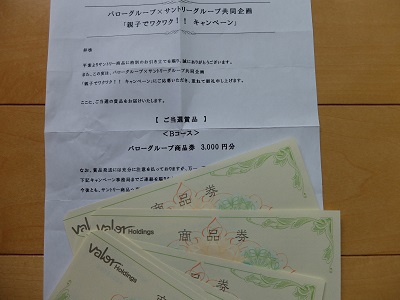 バローグループ×サントリーグループ共同企画
「親子でワクワク!! キャンペーン」
拝啓
平素よりサントリー商品に格別のお引き立てを賜り、誠にありがとうございます。
また、この度は、バローグループ×サントリーグループ共同企画
「親子でワクワク!! キャンペーン」にご応募いただき、重ねて御礼申し上げます。
ここに、ご当選の賞品をお届けいたします。
【 ご当選賞品 】
<Bコース>
バローグループ商品券 3,000円分
なお、賞品発送には万全に注意を払っておりますが、万一、
下記キャンペーン事務局までご連絡
今後とも、サントリー商品
商品券
val
商品券
valor Holdings
valor Holdings
商品券